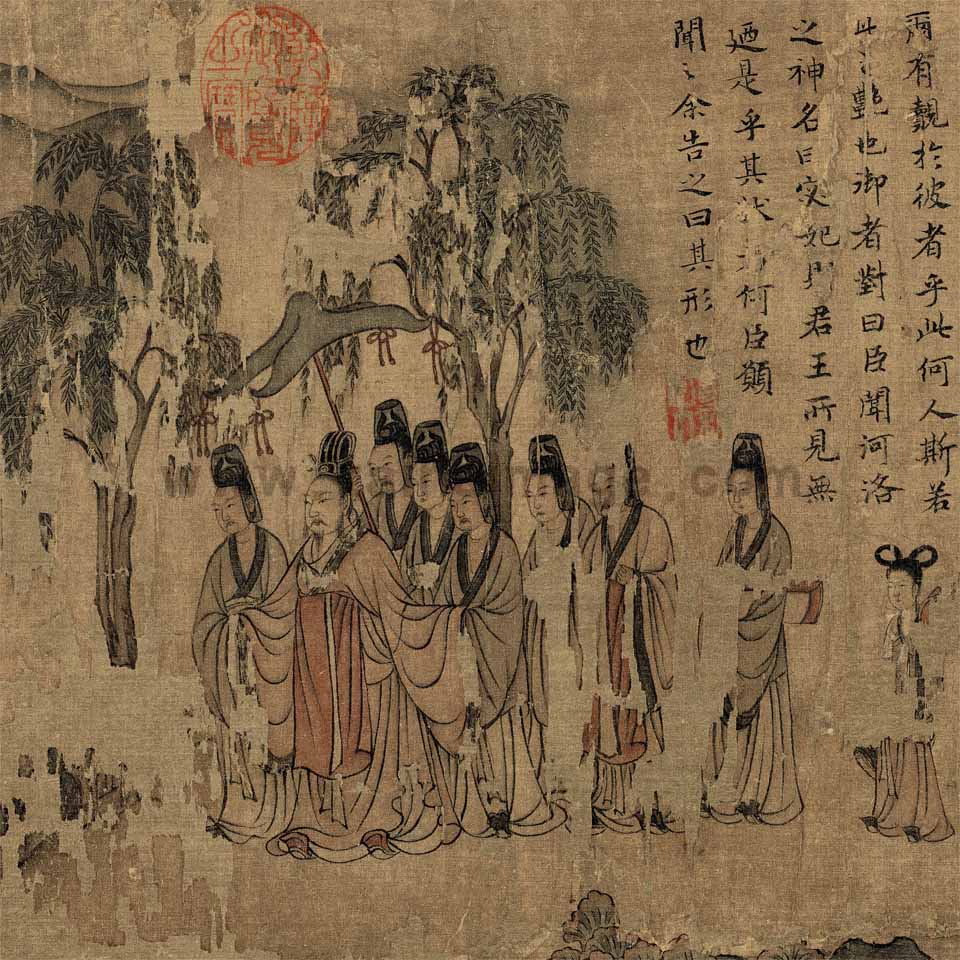 爾有覿於彼者乎此何人斯若
此之艷也御者對曰臣聞河洛
之神名曰宓妃則君王所見無
廼是乎其狀若何臣願
聞之余告之曰其形也